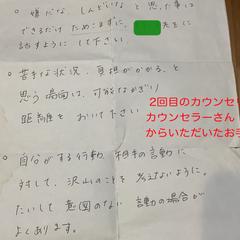 。嫌だな、しんどいなと思った事は
できるだけためこまずに、 先生に
話すようにして下さい。
。苦手な状況、負担がかかる、と
思う場面は、可能なかぎり
距離をおいて下さい
2回目のカウンセリ
カウンセラーさん
からいただいたお手
。自分がする行動、相手の言動に
対して、沢山のことを考えないように。
たいして意図のない言動の場合が
よくあります。